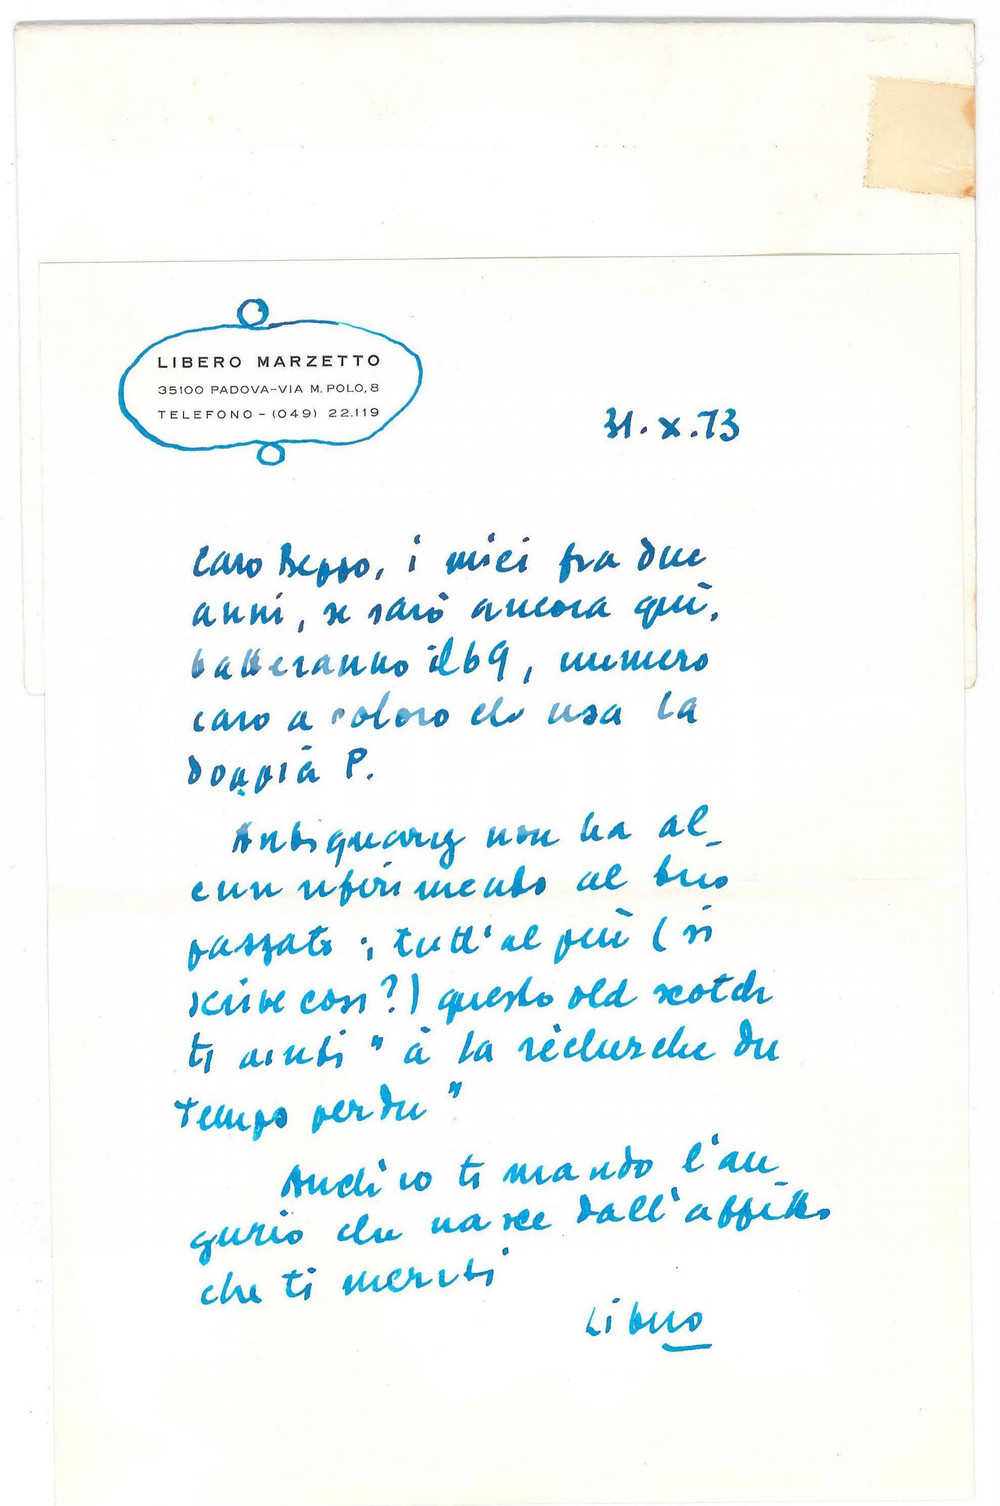 LIBERO MARZETTO
35100 PADOVA-VIA M. POLO, 8
TELEFONO - (049) 22.119
31.X.73
Caro Beppo, i miei fra due
anni, se sarò ancora quì,
batteranno il 69, numero
caro a coloro che usa la
doppia P.
Antiquary non ha al_
cun riferimento al tuo
passato; tutt'al più (si
scrive così?) questo old scotch
ti aiuti "à la rècherche du
temps perdu"
Anch'io ti mando l'au_
gurio che nasce dall'affetto
che ti meriti
Libero